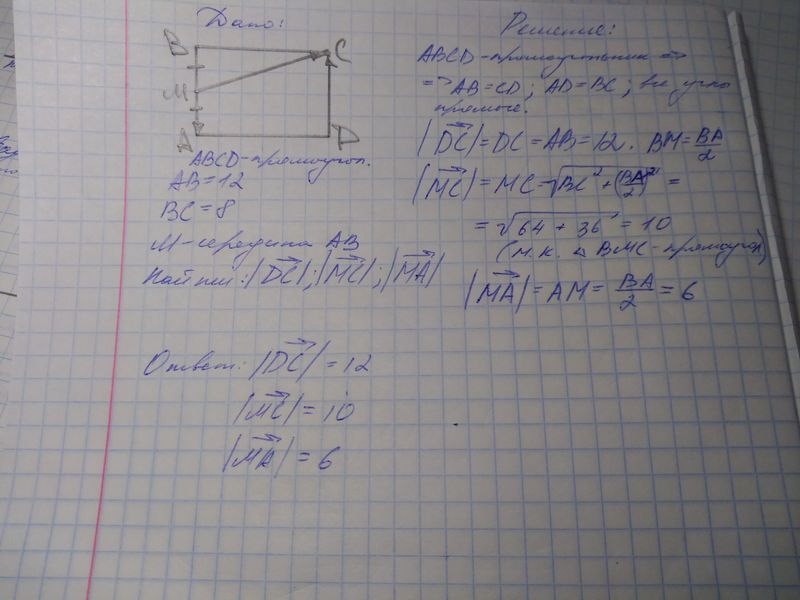 Дано:
B
C
M
A
D
ABCD-прямоугол.
AB=12
BC=8
M-середина AB
Найти: |DC|; |MC|; |MA|
Решение:
ABCD-прямоугольник =>
=> AB=CD; AD=BC; все углы
прямые.
|DC|=DC=AB=12. BM=BA/2
|MC|=MC=√BC²+(BA/2)² =
=√64+36 = 10
(т.к. △ BMC-прямоугол)
|MA|=AM= BA/2 =6
Ответ: |DC|=12
|MC|=10
|MA|=6